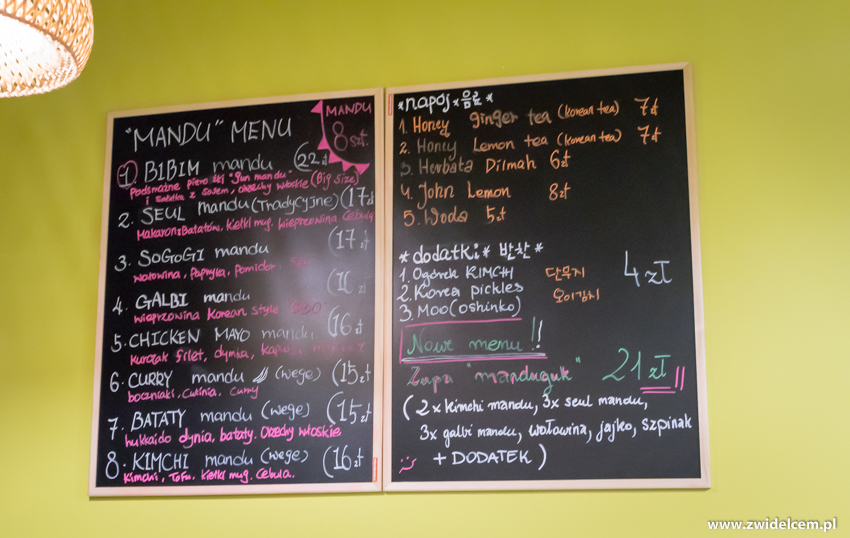 "MANDU" MENU
MANDU
8 szt.
1. BIBIM mandu (22 zł
Podsmażne pierożki "Gun mandu" (Big size)
i sałatka z sosem, orzechy włoskie
2. SEUL mandu (Tradycyjne) (17 zł
Makaron z Batatów, kiełki mug, wieprzowina Cebula
3. SOGOGI mandu (17 zł
wołowina, Papryka, Pomidor,
4. GALBI mandu
wieprzowina Korean style
5. CHICKEN MAYO mandu (16 zł
kurczak filet, dynia,
6. CURRY mandu (wege) (15 zł
boczniaki, Cukinia, Curry
7. BATATY mandu (wege) (15 zł
hukkaido dynia, bataty. Orzechy włoskie
8. KIMCHI mandu (wege) (16 zł
Kimchi, Tofu, kiełki mug. Cebula.
*napój*음료*
1. Honey ginger tea (korean tea) 7 zł
2. Honey Lemon tea (korean tea) 7 zł
3. Herbata Dilmah 6 zł
4. John Lemon 8 zł
5. Woda 5 zł
*dodatki* 반찬*
1. Ogórek KIMCHI 단무지
2. Korea pickles 4 zł
3. Moo (oshinko) 오이김치
Nowe menu!!
Zupa "manduguk" 21 zł!!
(2x kimchi mandu, 3x seul mandu,
3x galbi mandu, wołowina, jajko, szpinak
+ DODATEK)
www.zwidelcem.pl